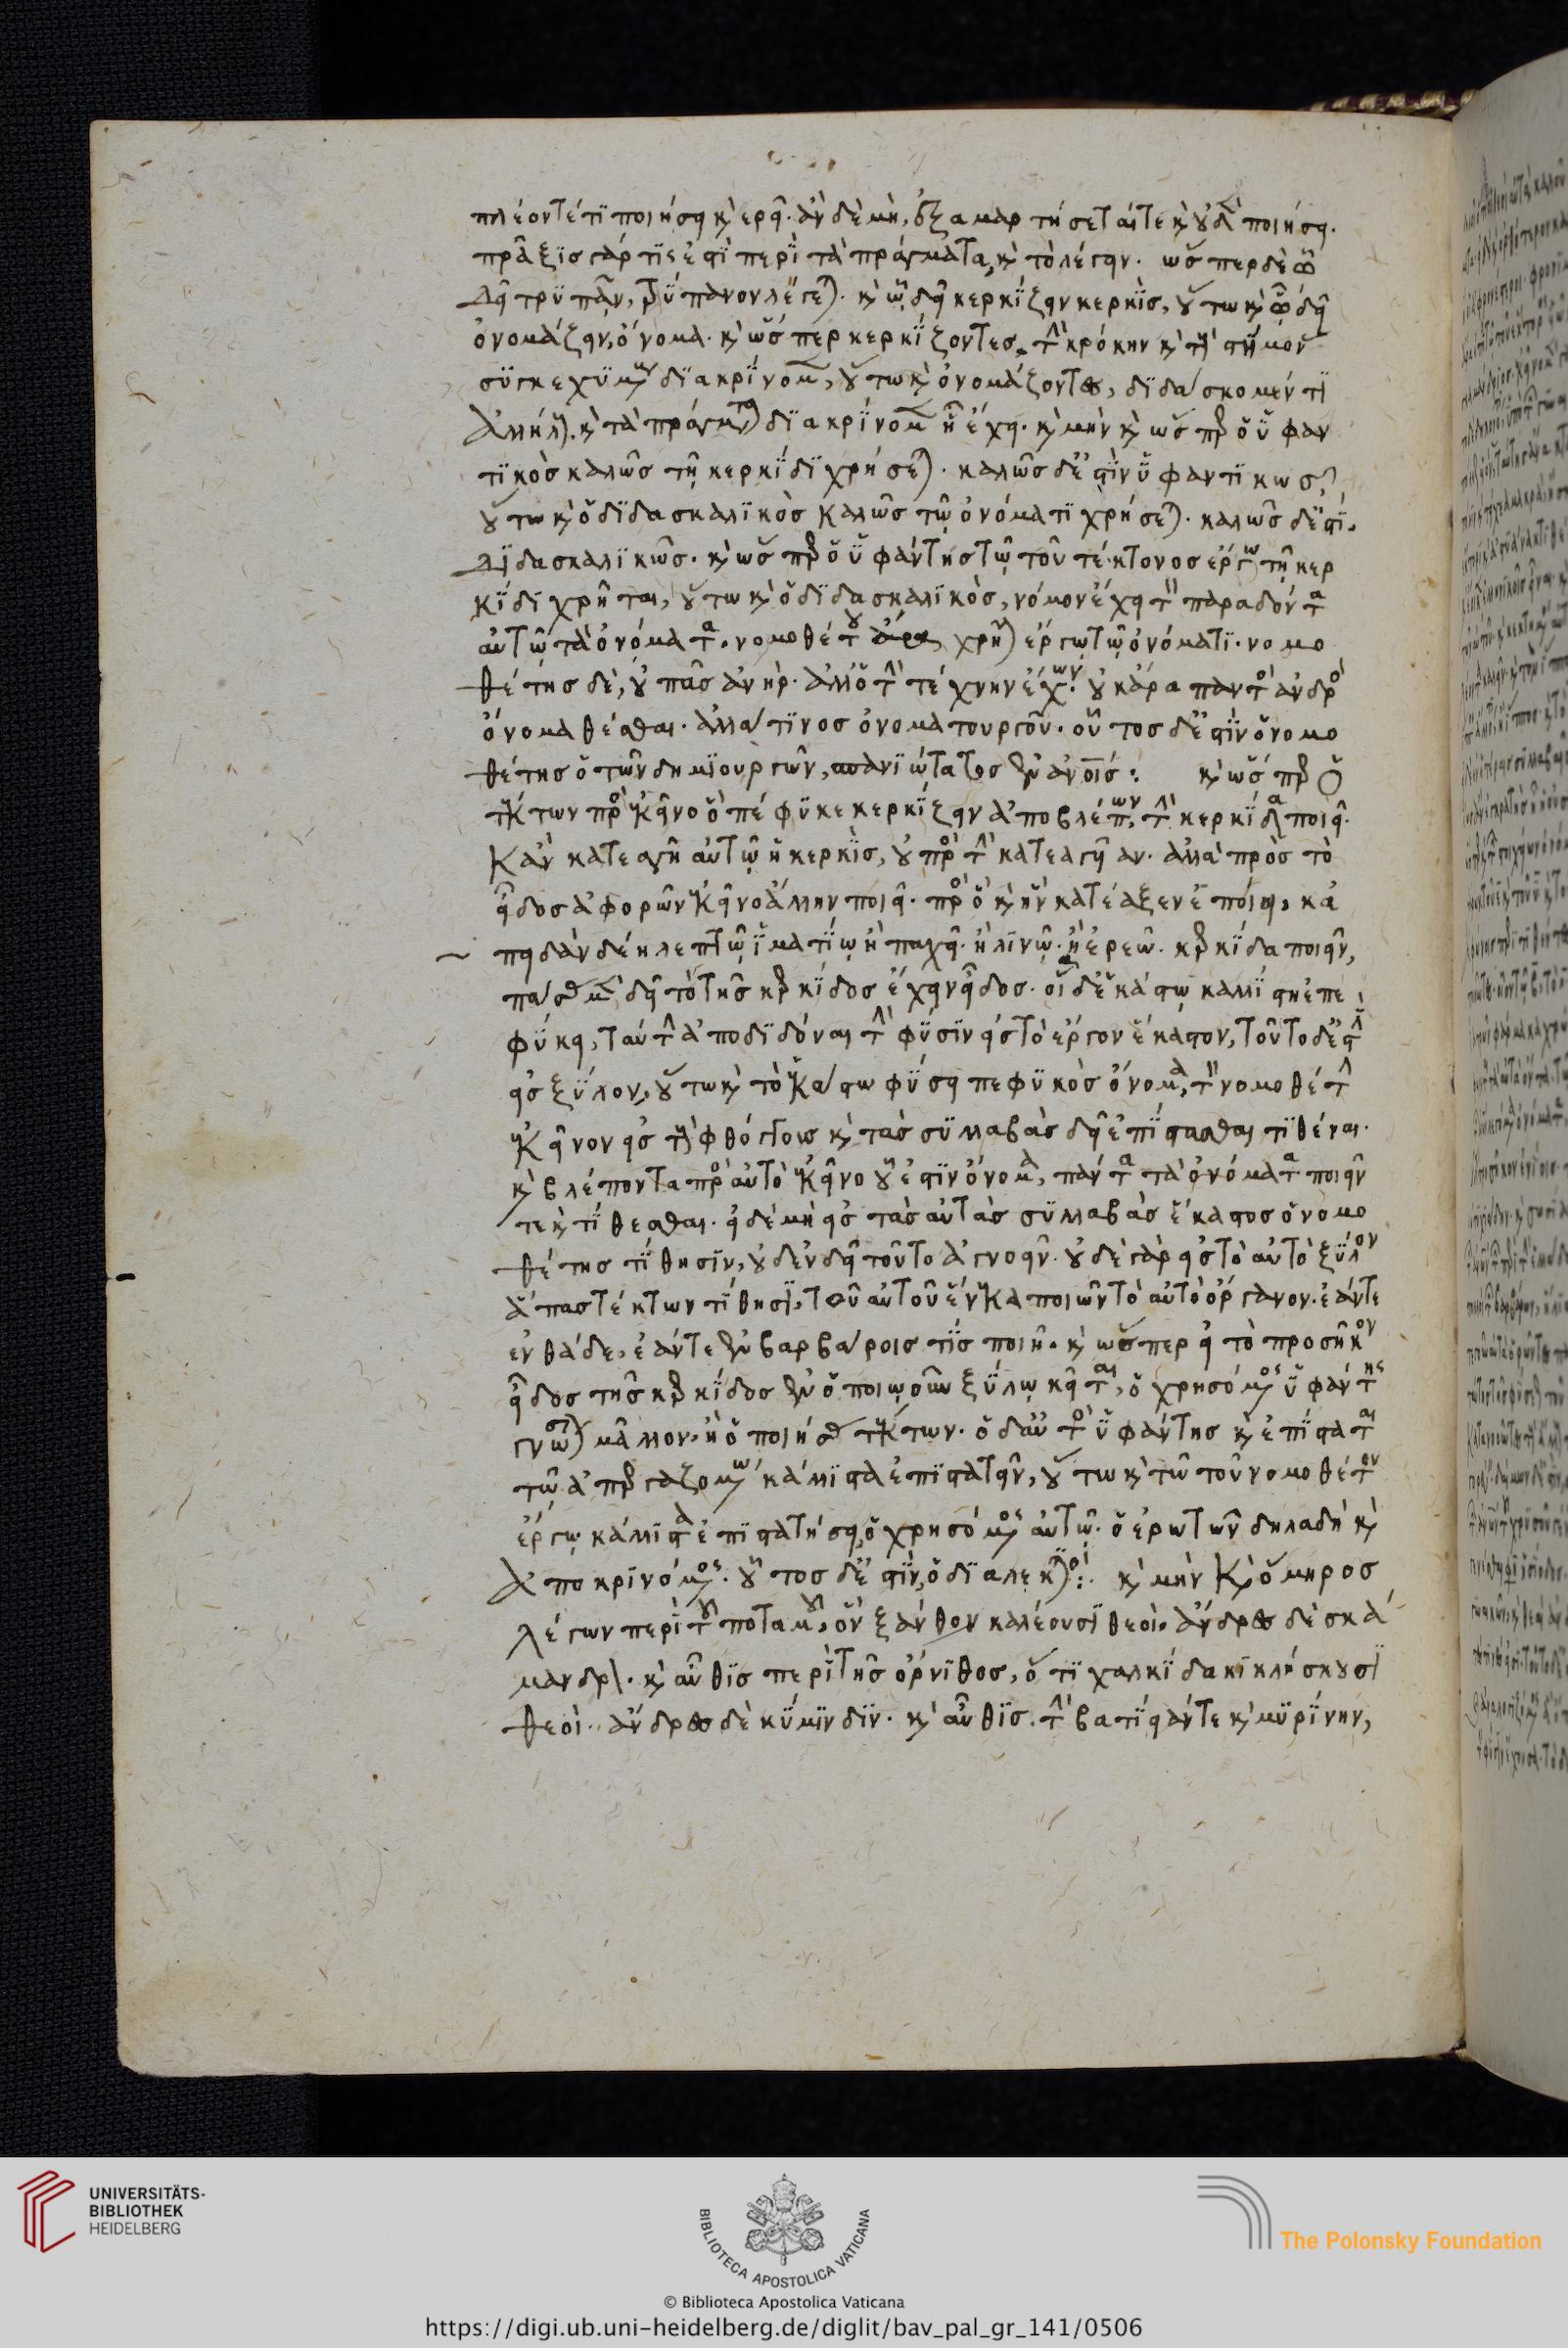 πλέον τέ τι ποιήσει κ' ἐρεῖ· ἂν δὲ μὴ, ἐξαμαρτήσεταί τε κ' οὐδὲν ποιήσει.
πρᾶξις γάρ τίς ἐστι περὶ τὰ πράγματα, κ' τὸ λέγειν. ὥσπερ δὲ ὧ
δεῖ τρυπᾶν, τρύπανον λέγεται. κ' ὧ δεῖ κερκίζειν κερκὶς, οὕτω κ' ὧ δεῖ
ὀνομάζειν, ὄνομα. κ' ὥσπερ κερκίζοντες, τὴν κρόκην κ' τοὺς στήμονας
συγκεχυμένους διακρίνομεν, οὕτω κ' ὀνομάζοντες, διδάσκομέν τι
ἀλλήλους. κ' τὰ πράγματα διακρίνομεν ἧ ἔχει. κ' μὴν κ' ὥσπερ ὁ ὑφαν
τικὸς καλῶς τῆ κερκίδι χρήσεται. καλῶς δ' ἐστὶν ὑφαντικῶς,
οὕτω κ' ὁ διδασκαλικὸς καλῶς τῶ ὀνόματι χρήσεται. καλῶς δ' ἐστὶ
διδασκαλικῶς. κ' ὥσπερ ὁ ὑφάντης τῶ τοῦ τέκτονος ἔργω τῆ κερ
κίδι χρῆται, οὕτω κ' ὁ διδασκαλικὸς, νόμον ἔχει τὸν παραδόντα
αὐτῶ τὰ ὀνόματα. νομοθέτου ἄρα χρῆται ἔργω τῶ ὀνόματι. νομο
θέτης δὲ, οὐ πᾶς ἀνὴρ. ἀλλ' ὁ τὴν τέχνην ἔχων. οὐκ ἄρα παντὸς ἀνδρὸς
ὄνομα θέσθαι. ἀλλά τινος ὀνοματουργοῦ. οὗτος δ' ἐστὶν ὁ νομο
θέτης ὁ τῶν δημιουργῶν, σπανιώτατος ἐν ἀνοις: κ' ὥσπερ ὁ
τέκτων πρὸς ἐκεῖνο ὃ πέφυκε κερκίζειν ἀποβλέπων, τὴν κερκίδα ποιεῖ.
κἂν κατεαγῆ αὐτῶ ἡ κερκὶς, οὐ πρὸς τὴν κατεαγυῖαν. ἀλλὰ πρὸς τὸ
εἶδος ἀφορῶν ἐκεῖνο ἄλλην ποιεῖ. πρὸς ὃ κ' ἣν κατέαξεν ἐποίει, κἀ
πειδὰν δέη λεπτῶ ἱματίω ἢ παχεῖ. ἢ λινῶ. ἢ ἐρεῶ. κερκίδα ποιεῖν,
πάσας μὲν δεῖ τὸ τῆς κερκίδος ἔχειν εἶδος. οἵα δ' ἑκάστω καλλίστη ἐπε
φύκει, ταύτην ἀποδιδόναι τὴν φύσιν εἰς τὸ ἔργον ἕκαστον, τοῦτο δ' ἐστὶν
εἰς ξύλον, οὕτω κ' τὸ ἑκάστω φύσει πεφυκὸς ὄνομα, τὸν νομοθέτην
ἐκεῖνον εἰς τοὺς φθόγγους κ' τὰς συλλαβὰς δεῖ ἐπίστασθαι τιθέναι.
κ' βλέποντα πρὸς αὐτὸ ἐκεῖνο ὅ ἐστιν ὄνομα, πάντα τὰ ὀνόματα ποιεῖν
τε κ' τίθεσθαι. εἰ δὲ μὴ εἰς τὰς αὐτὰς συλλαβὰς ἕκαστος ὁ νομο
θέτης τίθησιν, οὐδὲν δεῖ τοῦτο ἀγνοεῖν. οὐδὲ γὰρ εἰς τὸ αὐτὸ ξύλον
ἅπας τέκτων τίθησι, τοῦ αὐτοῦ ἕνεκα ποιῶν τὸ αὐτὸ ὄργανον. ἐάν τε
ἐνθάδε, ἐάν τε ἐν βαρβάροις τίς ποιῆ. κ' ὥσπερ εἰ τὸ προσῆκον
εἶδος τῆς κερκίδος ἐν ὁποιωοῦν ξύλω κεῖται, ὁ χρησόμενος ὑφάντης
γνώσεται μᾶλλον. ἢ ὁ ποιήσας τέκτων. ὁ δ' αὐτὸς ὑφάντης κ' ἐπίσταται
τῶ ἀπεργαζομένω κάλλιστα ἐπιστατεῖν, οὕτω κ' τῶ τοῦ νομοθέτου
ἔργω κάλλιστα ἐπιστατήσει, ὁ χρησόμενος αὐτῶ. ὁ ἐρωτῶν δηλαδὴ κ'
ἀποκρινόμενος. οὗτος δ' ἐστὶν, ὁ διαλεκτικός: κ' μὴν κ' ὅμηρος
λέγων περὶ τοῦ ποταμοῦ, ὃν ξάνθον καλέουσι θεοὶ, ἄνδρες δὲ σκά
μανδρον. κ' αὖθις περὶ τῆς ὄρνιθος, ὅτι χαλκίδα κικλήσκουσι
θεοὶ. ἄνδρες δὲ κύμινδιν. κ' αὖθις. τὴν βατίειάν τε κ' μυρίνην,
UNIVERSITÄTS-
BIBLIOTHEK
HEIDELBERG
BIBLIOTECA APOSTOLICA VATICANA
The Polonsky Foundation
© Biblioteca Apostolica Vaticana
https://digi.ub.uni-heidelberg.de/diglit/bav_pal_gr_141/0506